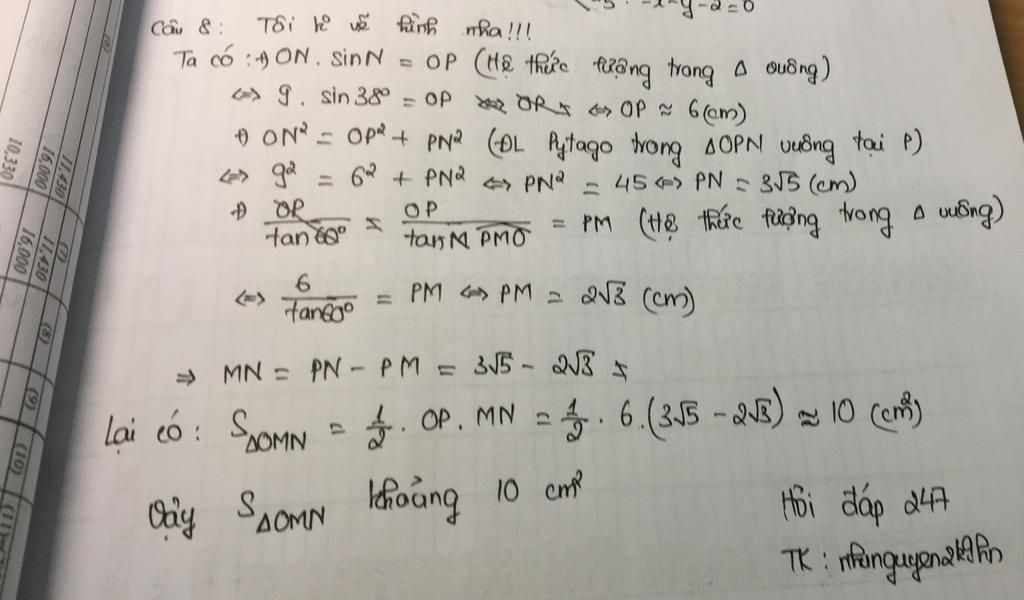 -x-y-2=0
Câu 8: Tôi k vẽ hình nha!!!
Ta có: +) ON. sinN = OP (Hệ thức tượng trong Δ vuông)
⇔ 9. sin38° = OP ⇔ OP ≈ 6(cm)
+) ON² = OP² + PN² (ĐL Pytago trong ΔOPN vuông tại P)
⇔ 9² = 6² + PN² ⇔ PN² = 45 ⇔ PN = 3√5 (cm)
+) OP/tan PMO = PM (Hệ thức tượng trong Δ vuông)
⇔ 6/tan60° = PM ⇔ PM = 2√3 (cm)
⇒ MN = PN - PM = 3√5 - 2√3
Lại có: SΔOMN = 1/2 . OP. MN = 1/2 . 6.(3√5 - 2√3) ≈ 10 (cm²)
Vậy SΔOMN khoảng 10 cm²
Hỏi đáp 247
TK:
(7) (8) (9) (10)
11.430 16.000 10.330
11.430 16.000